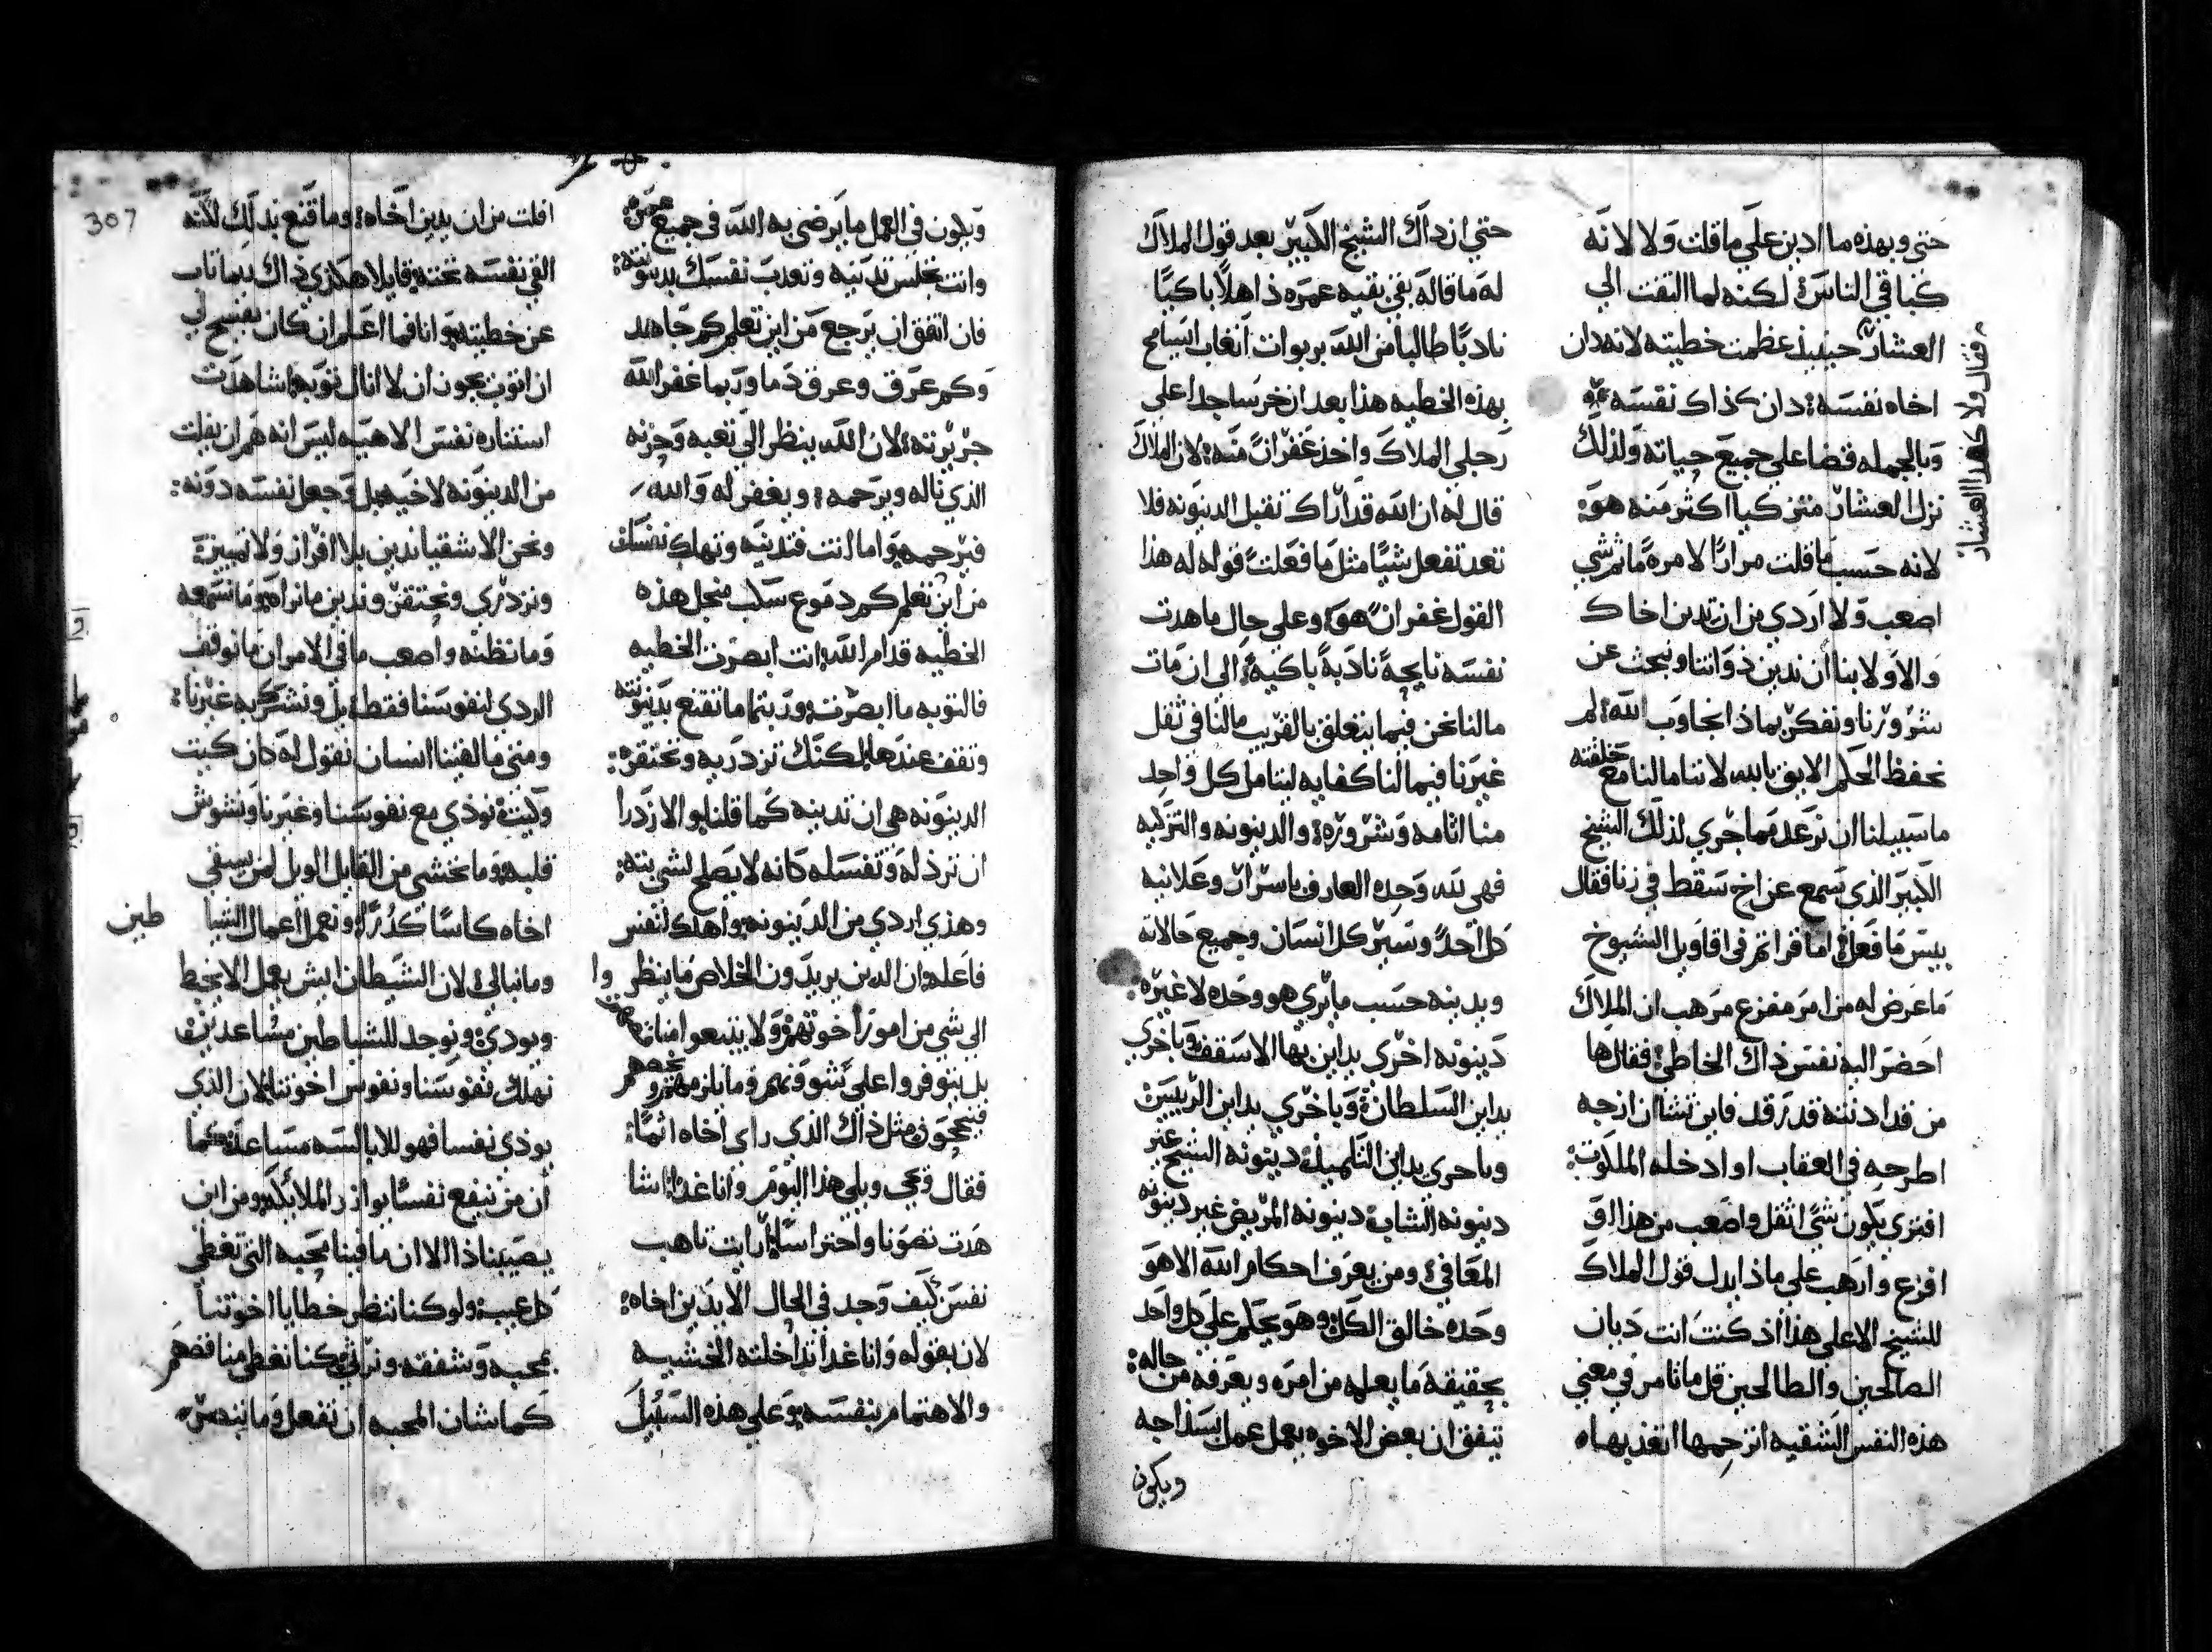 حتى وبهذه ما ادين على ما قلت ولا لانه
كباقي الناس؛ لكنه لما التفت الي
العشار حينيذ عظمت خطيته لانه دان
اخاه نفسه؛ دان كذاك نفسه
وبالجمله قضا على جميع حياته ولذلك
نزل العشار متزكيا اكثر منه هو؛
لانه حسب ما قلت مرارًا لا مرة ما ثم شي
اصعب ولا اردي من ان تدين اخاك
والاولا بنا ان ندين ذواتنا ونبحث عن
شرورنا ونفكر بماذا نجاوب الله؛ لم
نحفظ الحكم الايق بالله لاننا مالنا مع خلقته
ما سبيلنا ان نرعد مما جري لذلك الشيخ
الكبير الذي سمع عن اخ سقط في زنا فقال
بيس ما فعل؛ اما قراتم في اقاويل الشيوخ
ما عرض له من امر مفزع مرهب ان الملاك
احضر اليه نفس ذاك الخاطي؛ فقال ها
من قد ادنته قد رقد فاين تشا ان ازجه
اطرحه في العقاب او ادخله الملكوت؛
افترى يكون شيً اثقل واصعب من هذا او
افزع وارهب على ماذا يدل قول الملاك
للشيخ الا على هذا اذ كنت انت ديان
الصالحين والطالحين قل ما تامر في معني
هذه النفس الشقيه اترحمها اتعذبها
فقال ولا كهذا العشار
حتي ان ذاك الشيخ الكبير بعد قول الملاك
له ما قاله بقي بقيه عمره ذاهلاً باكيًا
نادبًا طالبا من الله بربوات اتعاب ايسامح
بهذه الخطيه هذا بعد ان خر ساجدا على
رجلي الملاك واخذ غفران منه؛ لان الملاك
قال له ان الله قد اراك ثقل الدينونه فلا
تعد تفعل شيًا مثل ما فعلت؛ قوله له هذا
القول غفران هو؛ وعلى حال ما هدت
نفسه نايحةً نادبةً باكيةً الى ان مات
مالنا نحن فيما يتعلق بالقريب مالنا في ثقل
غيرنا فيما لنا كفايه ليتامل كل واحد
منا اثامه وشروره؛ والدينونه والتزكيه
فهي لله وحده العارف باسرار وعلانيه
كل احدً وسير كل انسان وجميع حالاته
ويدينه حسب ما يري هو وحده لا غيره؛
دينونه اخرى يداين بها الاسقف وباخري
يداين السلطان؛ وباخري يداين الرييس؛
وباخري يداين التلميذ؛ دينونه الشيخ غير
دينونه الشاب؛ دينونه المريض غير دينونه
المعافي؛ ومن يعرف احكام الله الا هو
وحده خالق الكل؛ وهو يحكم على كل واحد
بحقيقة ما يعلمه من امره ويعرفه من حاله؛
يتفق ان بعض الاخوه يعمل عملا بسذاجه
ويكون
ويكون في العمل ما يرضي به الله في جميع عمره؛
وانت تجلس تدينه وتعذب نفسك بدينونته؛
فان اتفق ان يرجع من اين تعلم كم جاهد
وكم عرق وعرق دما وربما غفر الله
جريرته؛ لان الله ينظر الي تعبه وحزنه
الذي ناله ويرحمه؛ ويغفر له والله
فيرحمه؛ واما انت فتدينه وتهلك نفسك
من اين تعلم كم دموع سكب من اجل هذه
الخطيه قدام الله؛ انت ابصرت الخطيه
فالتوبه ما ابصرت؛ وربتما ما تقتنع بدينونته
وتقف عندها؛ لكنك تزدريه وتحتقره؛
الدينونه هي ان تدينه كما قلنا؛ والازدرا
ان ترذله وتفسله كانه لا يصلح لشي بته؛
وهذي اردي من الدينونه؛ واهلك لنفس
فاعله؛ ان الذين يريدون الخلاص ما ينظروا
الى شي من امور اخوتهم؛ ولا يتبعوا
بل يتوفروا على شووفهم وما يلزمهم
فينجحون مثل ذاك الذي راى اخاه اثمًا؛
فقال ويحي ويلي هذا اليوم وانا غدًا اشا
هدت تصونا واحتراسًا؛ ارايت تاهب
نفس كيف وجد في الحال الا يدين اخاه؛
لان بقوله وانا غدًا تداخلته الخشيه
والاهتمام بنفسه؛ وعلى هذه السبيل
307
افلت من ان يدين اخاه؛ وما قنع بذلك لكنه
القي نفسه تحته؛ قايلا هكذي ذاك ربما تاب
عن خطيته؛ وانا فما اعلم ان كان يفسح لي
ان اتوب يجوز ان لا انال توبه؛ شاهدت
استناره نفس الاهيه ليس انه هم ان يفلت
من الدينونه لاخيه؛ بل وجعل نفسه دونه؛
ونحن الاشقيا ندين بلا افراز ولا تمييز؛
ونزدري ونحتقر وندين ما نراه؛ وما نسمعه
وما نظنه واصعب ما في الامر ان ما نوقف
الردي لنفوسنا فقط؛ بل ونشركه غيرنا؛
ومتي ما لقينا انسان نقول له كان كيت
وكيت؛ نوذي مع نفوسنا وغيرنا ونشوش
قلبه؛ وما نخشي من القايل الويل لمن يسقي
اخاه كاسًا كدرًا؛ ونعمل اعمال الشيا طين
وما نبالي؛ لان الشيطان ايش يعمل الا يخبط
ويوذي؛ ونوجد للشياطين مساعدين؛
نهلك نفوسنا ونفوس اخوتنا؛ لان الذي
يوذي نفسا فهو للابالسه مساعدًا؛ كما
ان من ينفع نفسًا يوازر الملائكه؛ ومن اين
يصيبنا ذا الا ان ما فينا محبه التي تغطي
كل عيب؛ ولو كنا ننظر خطايا اخوتنا
بمحبه وشفقه؛ ونراتي؛ كنا نغطي منا نقصهم
كما شان المحبه ان تفعل وما